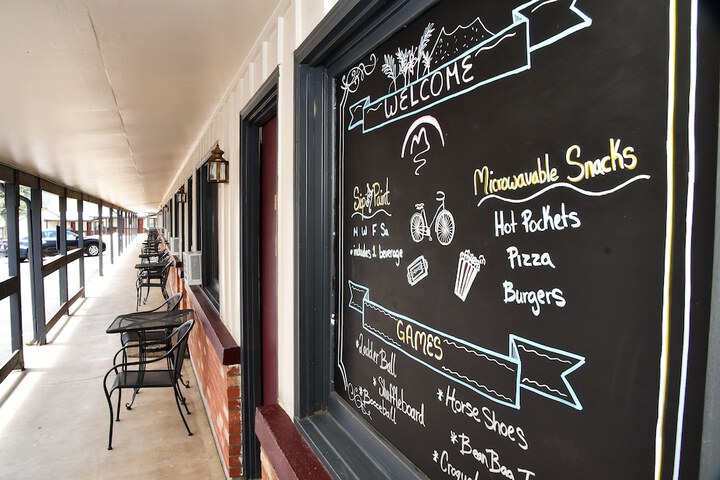 WELCOME
Sip & Paint
M W F Sa
*includes 2 beverage
Microwavable Snacks
Hot Pockets
Pizza
Burgers
GAMES
*Ladder Ball
*Shuffleboard
*Bocceball
*Horse Shoes
*Bean Bag T
*Croqu